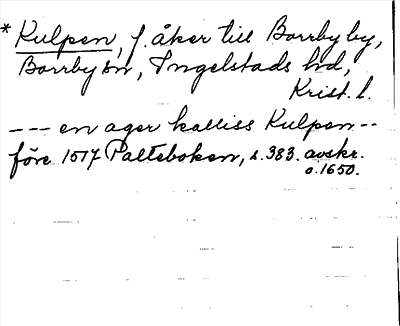 * Kulpen, f. åker till Borrby by,
Borrby sn, Ingelstads hd,
Krist. l.
--- en ager kalliss Kulpen --
före 1517 Palteboken, s. 383. avskr.
o. 1650.